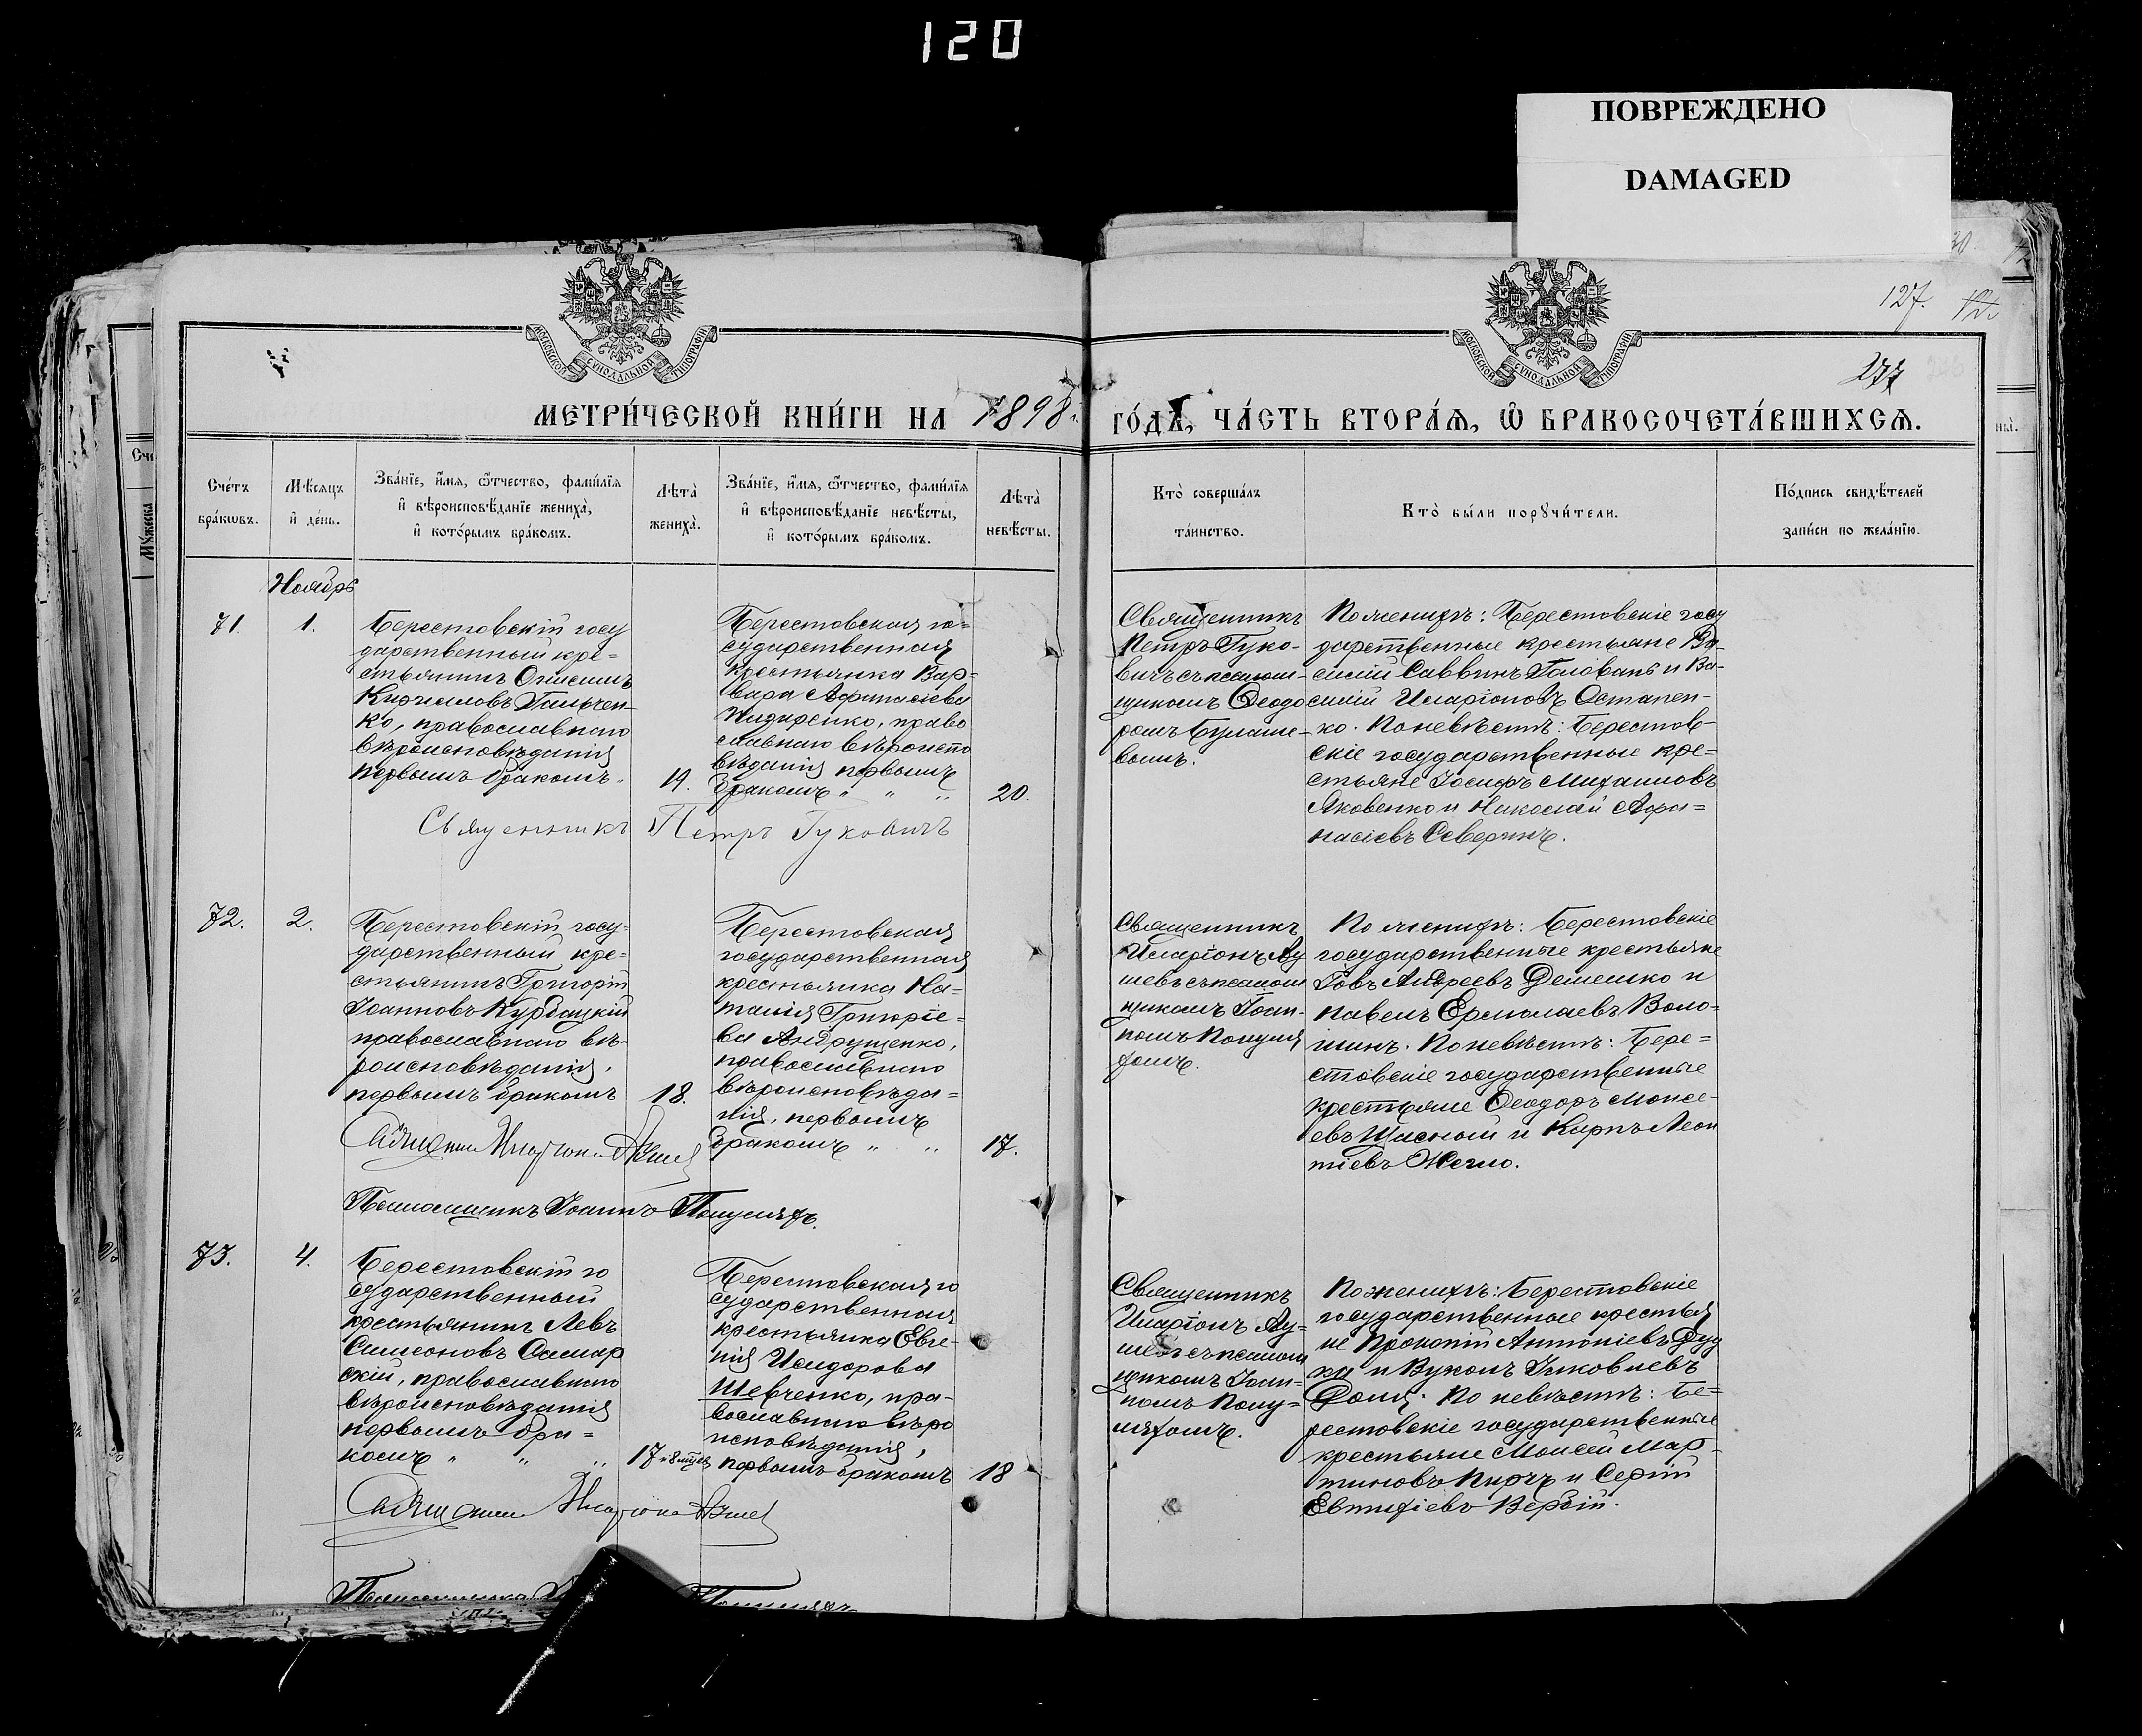 120
ПОВРЕЖДЕНО
DAMAGED
127.
277
МОСКОВСКОЙ СУНОДАЛЬНОЙ ТИПОГРАФІИ
МОСКОВСКОЙ СУНОДАЛЬНОЙ ТИПОГРАФІИ
МЕТРИ́ЧЕСКОЙ КНИ́ГИ НА 1898 ГО́ДА, ЧА́СТЬ ВТОРА́Ѧ, Ѿ БРАКОСОЧЕТА́ВШИХСѦ.
Сче́тъ
бра́кѡвъ.
Мѣ́сяцъ
и҆ де́нь.
Зва́нїе, и҆́мя, ѻ҆́тчество, фами́лїя
и҆ вѣроисповѣ́данїе жениха̀,
и҆ кото́рымъ бра́комъ.
Лѣта̀
жениха̀.
Зва́нїе, и҆́мя, ѻ҆́тчество, фами́лїя
и҆ вѣроисповѣ́данїе невѣ́сты,
и҆ кото́рымъ бра́комъ.
Лѣта̀
невѣ́сты.
Кто̀ соверша́лъ
та́инство.
Кто̀ бы́ли порꙋчи́тели.
По́дпись свидѣ́телей
за́писи по жела́нїю.
Ноябрь
71.
1.
Берестовскій госу
дарственный кре=
стьянинъ Онисимъ
Кирилловъ Гальчен-
ко, православнаго
вѣроисповѣданія
первымъ бракомъ.
19.
Берестовская го=
сударственная
крестьянка Вар=
вара Афанасіева
Жидченко, право
славнаго вѣроиспо
вѣданія первымъ
бракомъ " " "
20.
Священникъ Петръ Гуковичъ
Священникъ
Петръ Гуко-
вичъ съ псалом-
щикомъ Ѳеодо
ромъ
вымъ.
По женихѣ: Берестовскіе госу
дарственные крестьяне Ва-
силій Саввинъ Головань и Ва-
силій Иларіоновъ Остапен-
ко. По невѣстѣ: Берестов-
скіе государственные кре=
стьяне Іосифъ Михаиловъ
Яковенко и Николай Афа=
насіевъ Северинъ.
72.
2.
Берестовскій госу-
дарственный кре=
стьянинъ Григорій
Іоанновъ Курбацкій
православнаго вѣ-
роисповѣданія,
первымъ бракомъ
18.
Берестовская
государственная
крестьянка На=
талія Григоріе=
ва Андрущенко,
православнаго
вѣроисповѣда=
нія, первымъ
бракомъ " "
17.
Псаломщикъ Іоаннъ
Священникъ
Иларіонъ
съ псалом
щикомъ Іоан-
номъ
По женихѣ: Берестовскіе
государственные крестьяне
Іовъ Андреевъ Демешко и
Павелъ Ермолаевъ Воло=
шинъ. По невѣстѣ: Бере=
стовскіе государственные
крестьяне Ѳеодоръ Моисе-
евъ Щасный и Карпъ Леон
тіевъ Жегло.
73.
4.
Берестовскій го
сударственный
крестьянинъ Левъ
Симеоновъ Самар
скій, православнаго
вѣроисповѣданія
первымъ бра=
комъ " " "
17
Берестовская го
сударственная
крестьянка Евге-
нія Исидорова
Шевченко, пра-
вославнаго вѣро
исповѣданія,
первымъ бракомъ
18
Священникъ
Иларіонъ
съ псалом
щикомъ Іоан=
номъ
По женихѣ: Берестовскіе
государственные крестья
не Прокопій Антоніевъ Дуд
ка и Вуколъ Іаковлевъ
По невѣстѣ: Бе=
рестовскіе государственные
крестьяне Моисей Мар-
тиновъ и Сергій
Евтихіевъ Вербій.